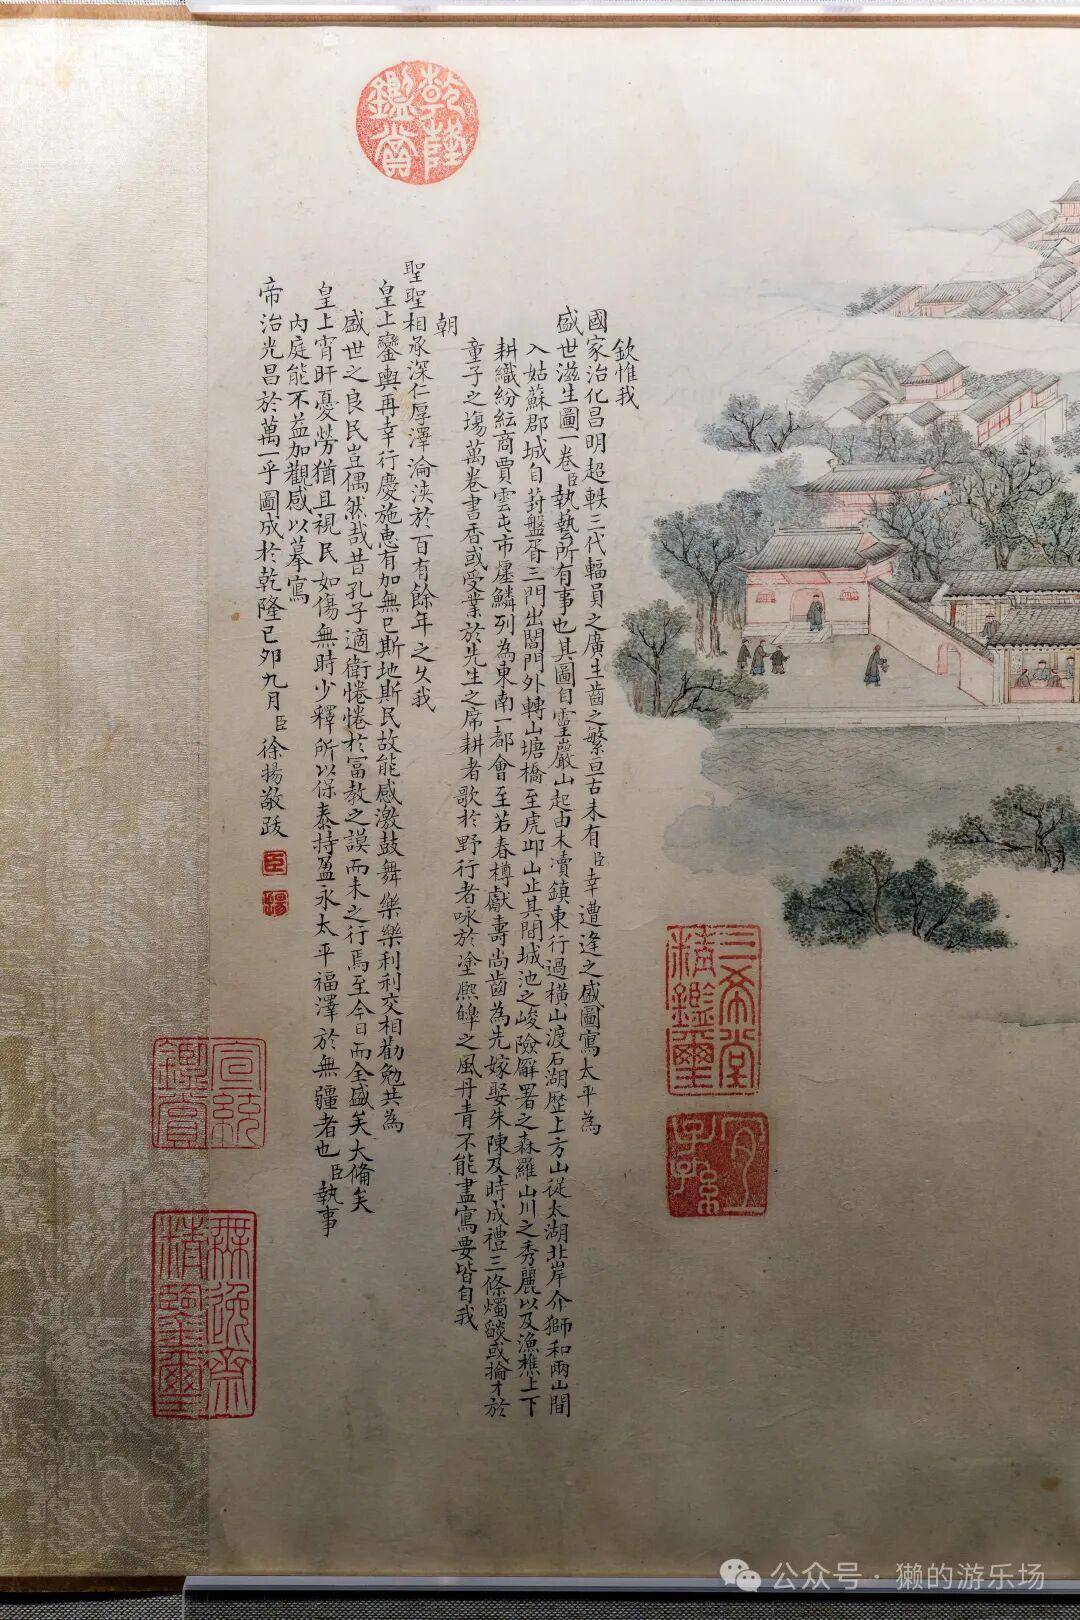 欽惟我
國家治化昌明超軼三代輻員之廣生齒之繁亘古未有臣幸遭逢之盛圖寫太平為
盛世滋生圖一卷臣執藝所有事也其圖自靈巖山起由木瀆鎮東行過橫山渡石湖歷上方山從太湖北岸介獅和兩山間
入姑蘇郡城自葑盤胥三門出閶門外轉山塘橋至虎邱山止其間城池之峻險廨署之森羅山川之秀麗以及漁樵上下
耕織紛紜商賈雲屯市廛鱗列為東南一都會至若春樽獻壽尚齒為先嫁娶朱陳及時成禮三條燭燄或掄才於
童子之塲萬卷書香或受業於先生之席耕者歌於野行者咏於塗熈皥之風丹青不能盡寫要皆自我
朝
聖聖相承深仁厚澤淪浹於百有餘年之久我
皇上鑾輿再幸行慶施惠有加無已斯地斯民故能感激鼓舞樂樂利利交相勸勉共為
盛世之良民豈偶然哉昔孔子適衛惓惓於冨教之謨而未之行焉至今日而全盛矣大備矣
皇上宵旰憂勞猶且視民如傷無時少釋所以保泰持盈永太平福澤於無疆者也臣執事
內庭能不益加觀感以摹寫
帝治光昌於萬一乎圖成於乾隆己卯九月臣徐揚敬跋
臣
揚
乾隆
鑑賞
三希堂
精鑑璽
宜
子孫
宣統
鑑賞
無逸齋
精鑒璽
公众号·獭的游乐场